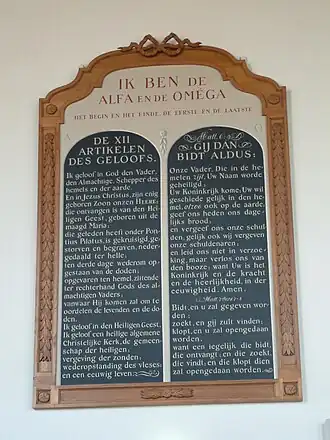 IK BEN DE
ALFA EN DE OMEGA
HET BEGIN EN HET EINDE, DE EERSTE EN DE LAATSTE
A
Ω
DE XII
ARTIKELEN
DES GELOOFS.
Ik geloof in God den Vader,
den Almachtige, Schepper des
hemels en der aarde.
En in Jezus Christus, zijn enig
geboren Zoon onzen HEERE;
die ontvangen is van den Hei-
ligen Geest, geboren uit de
maagd Maria;
die geleden heeft onder Pon-
tius Pilatus, is gekruisigd, ge-
storven en begraven, neder-
gedaald ter helle;
ten derde dage wederom op-
gestaan van de doden;
opgevaren ten hemel, zittende
ter rechterhand Gods des al-
machtigen Vaders;
vanwaar Hij komen zal om te
oordelen de levenden en de do-
den.
Ik geloof in den Heiligen Geest.
Ik geloof een heilige algemene
Christelijke Kerk, de gemeen-
schap der heiligen;
vergeving der zonden;
wederopstanding des vleses;
en een eeuwig leven.
Matt. 6:9
GIJ DAN
BIDT ALDUS:
Onze Vader, Die in de he-
melen zijt, Uw Naam worde
geheiligd;
Uw Koninkrijk kome; Uw wil
geschiede gelijk in den he-
mel, alzo ook op de aarde.
geef ons heden ons dage-
lijks brood.
en vergeef ons onze schul-
den, gelijk ook wij vergeven
onze schuldenaren;
en leid ons niet in verzoe-
king, maar verlos ons van
den boze; want Uw is het
Koninkrijk en de kracht
en de heerlijkheid, in der
eeuwigheid. Amen.
Bidt, en u zal gegeven wor-
den;
zoekt, en gij zult vinden;
klopt, en u zal opengedaan
worden.
want een iegelijk die bidt,
die ontvangt; en die zoekt,
die vindt, en die klopt dien
zal opengedaan worden.